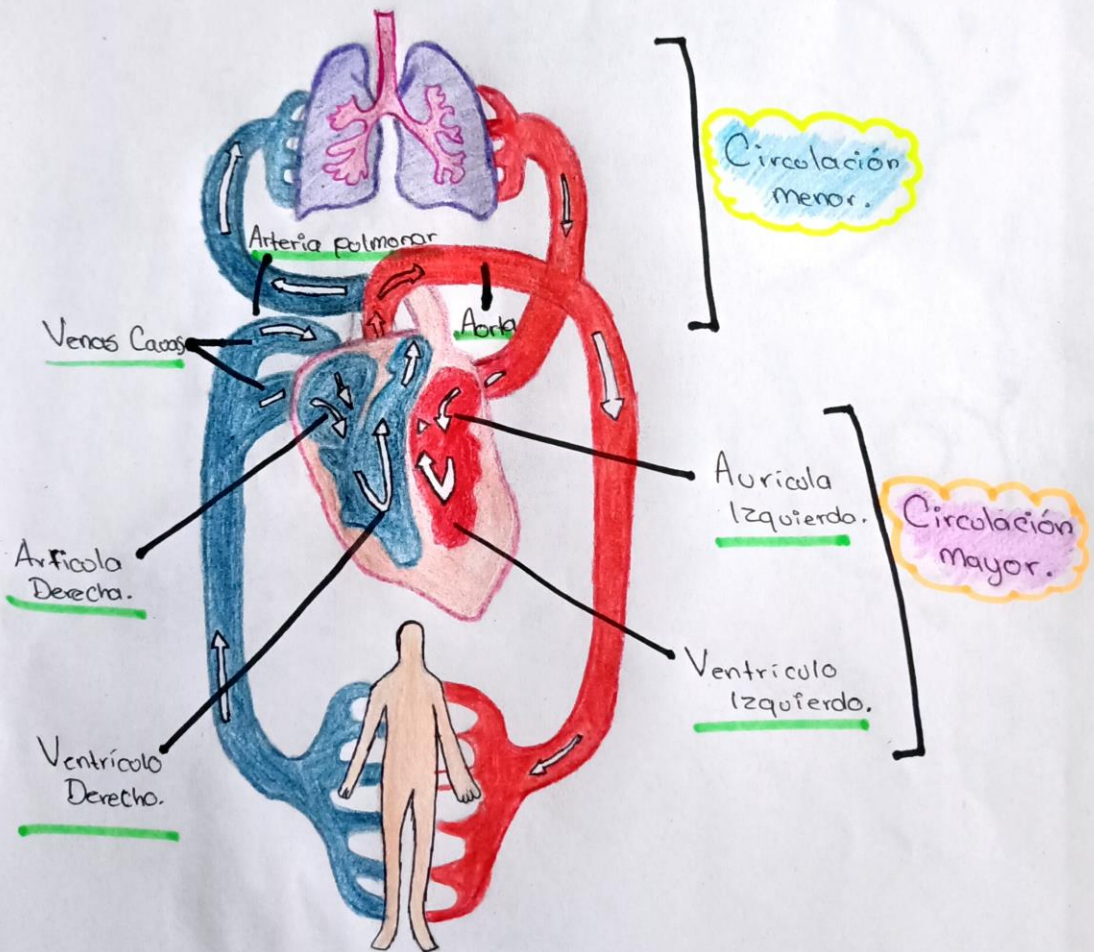 Circulación
menor.
Arteria pulmonar
Venas Cavas
Aorta
Aurícula
Izquierdo.
Circulación
mayor.
Artícola
Derecha.
Ventrículo
Izquierdo.
Ventrículo
Derecho.